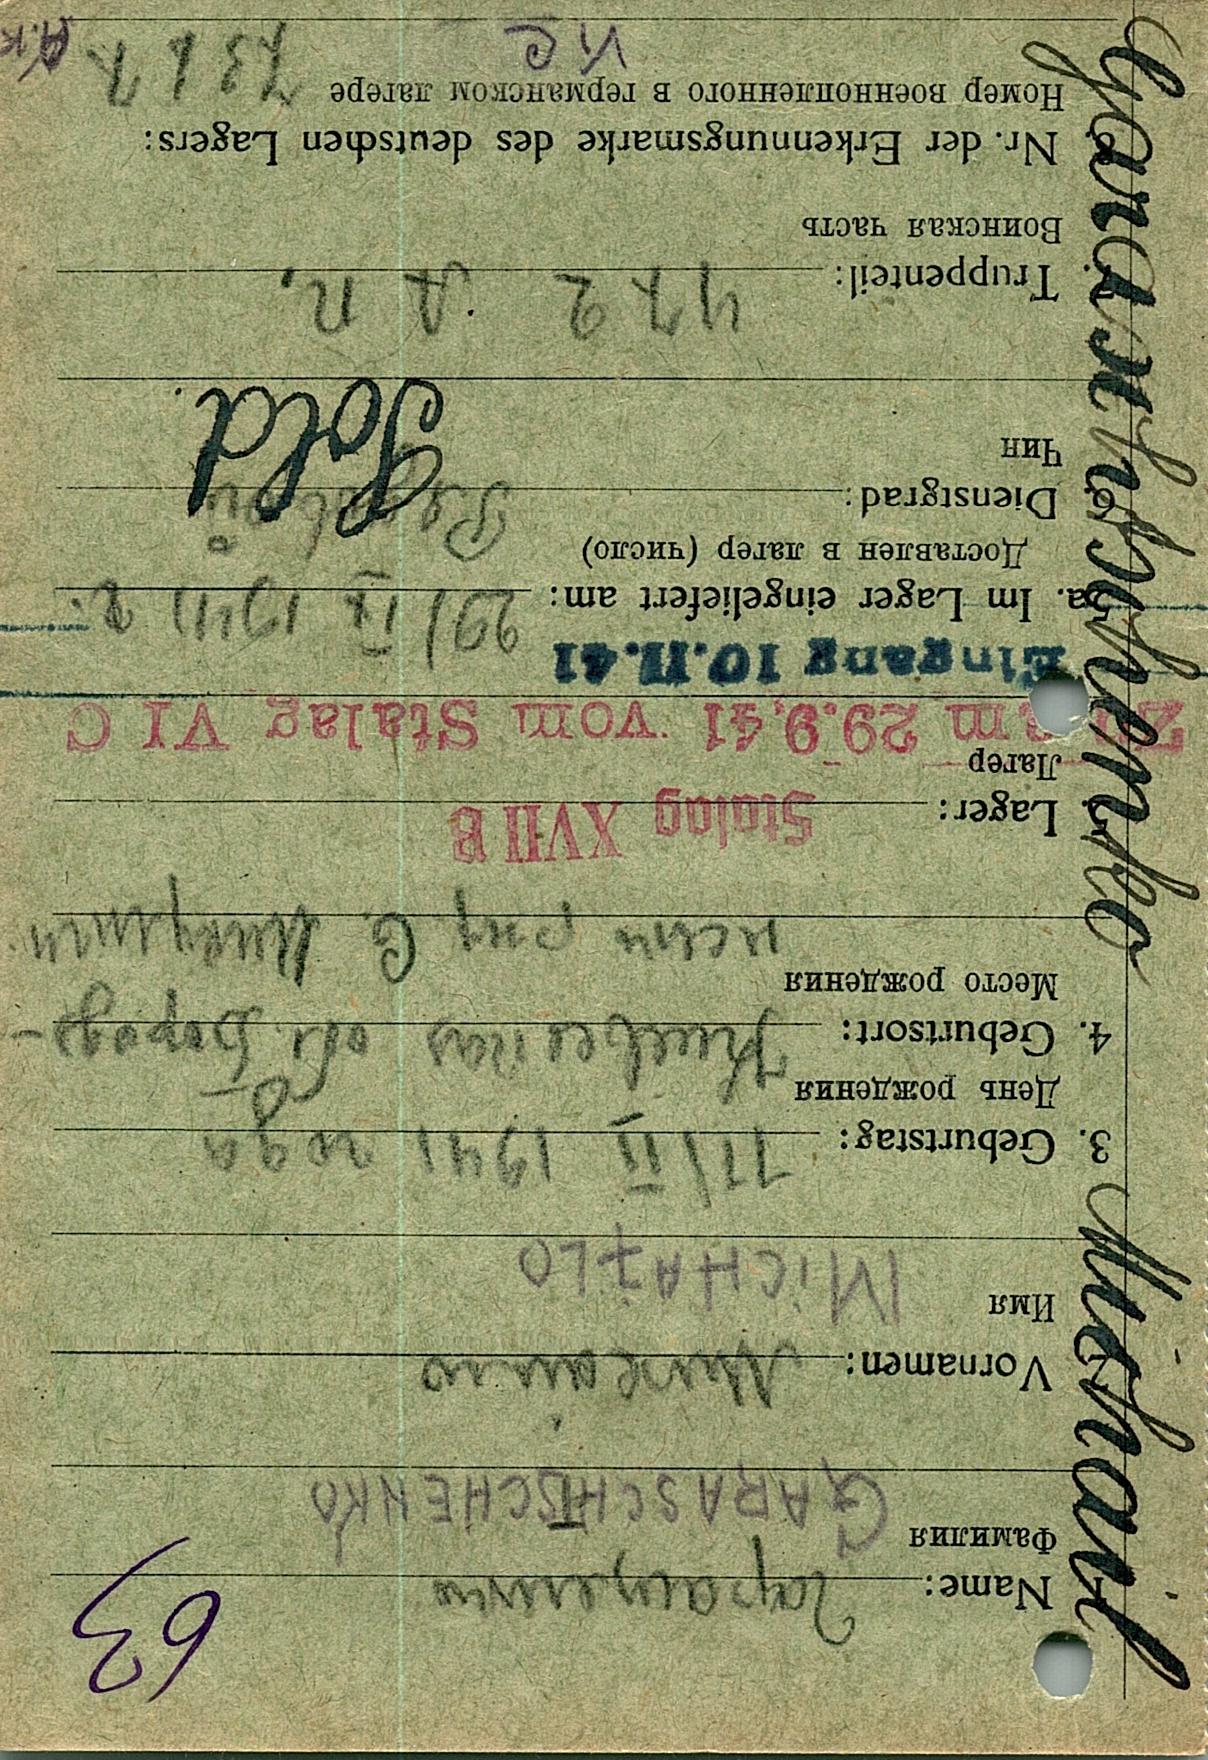 63
Name: Гаращенко
Фамилия
GARASCHTSCHENKO
Vornamen: Михайло
Имя
MICHAJLO
3. Geburtstag: 11/II 1941 года
День рождения
4. Geburtsort: Киевская обл. Бородя-
Место рождения
нски р-н С.
Lager: Stalag XVII B
Лагер
am 29.9.41 vom Stalag VI C
Eingang 10.II.41
a. Im Lager eingeliefert am: 29/IX 1941 г.
Доставлен в лагер (число)
Dienstgrad: Рядовой
Sold.
Чин
Truppenteil: 472 А. П.
Воинская часть
Nr. der Erkennungsmarke des deutschen Lagers:
Номер военнопленного в германском лагере
VI C
Michail